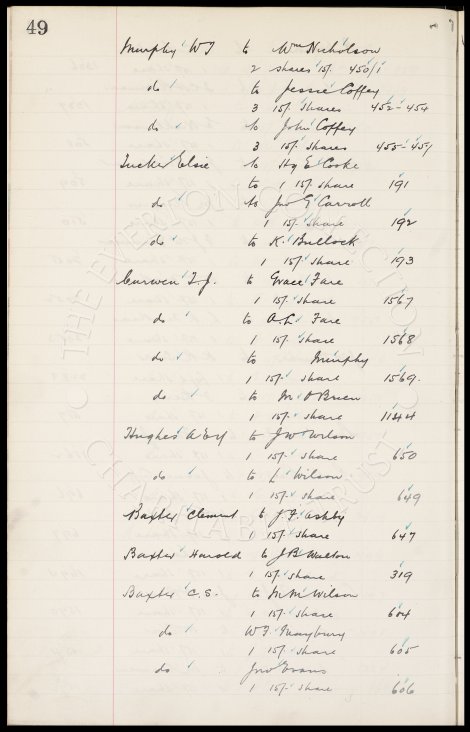 49
Murphy W J to Wm Nicholson
2 shares 15/- 450/1
do to Jessie Coffey
3 15/- shares 452-454
do to John Coffey
3 15/- shares 455-457
Tucker Elsie to Hy E Cooke
to 1 15/- share 191
do to Jno G Carroll
1 15/- share 192
do to K. Bullock
1 15/- share 193
Curwen T. J. to Grace Fare
1 15/- share 1567
do to A.L. Fare
1 15/- share 1568
do to Murphy
1 15/- share 1569.
do to M O'Brien
1 15/- share 1144
Hughes A to J W Wilson
1 15/- share 650
do to L Wilson
1 15/- share 649
Baxter Clement to J. F. Ashby
1 15/- share 647
Baxter Harold to J B Walton
1 15/- share 319
Baxter C. S. to Wilson
1 15/- share 604
do W J Maybury
1 15/- share 605
do Jno Evans
1 15/- share 606
THE EVERTON COLLECTION
CHARITABLE TRUST